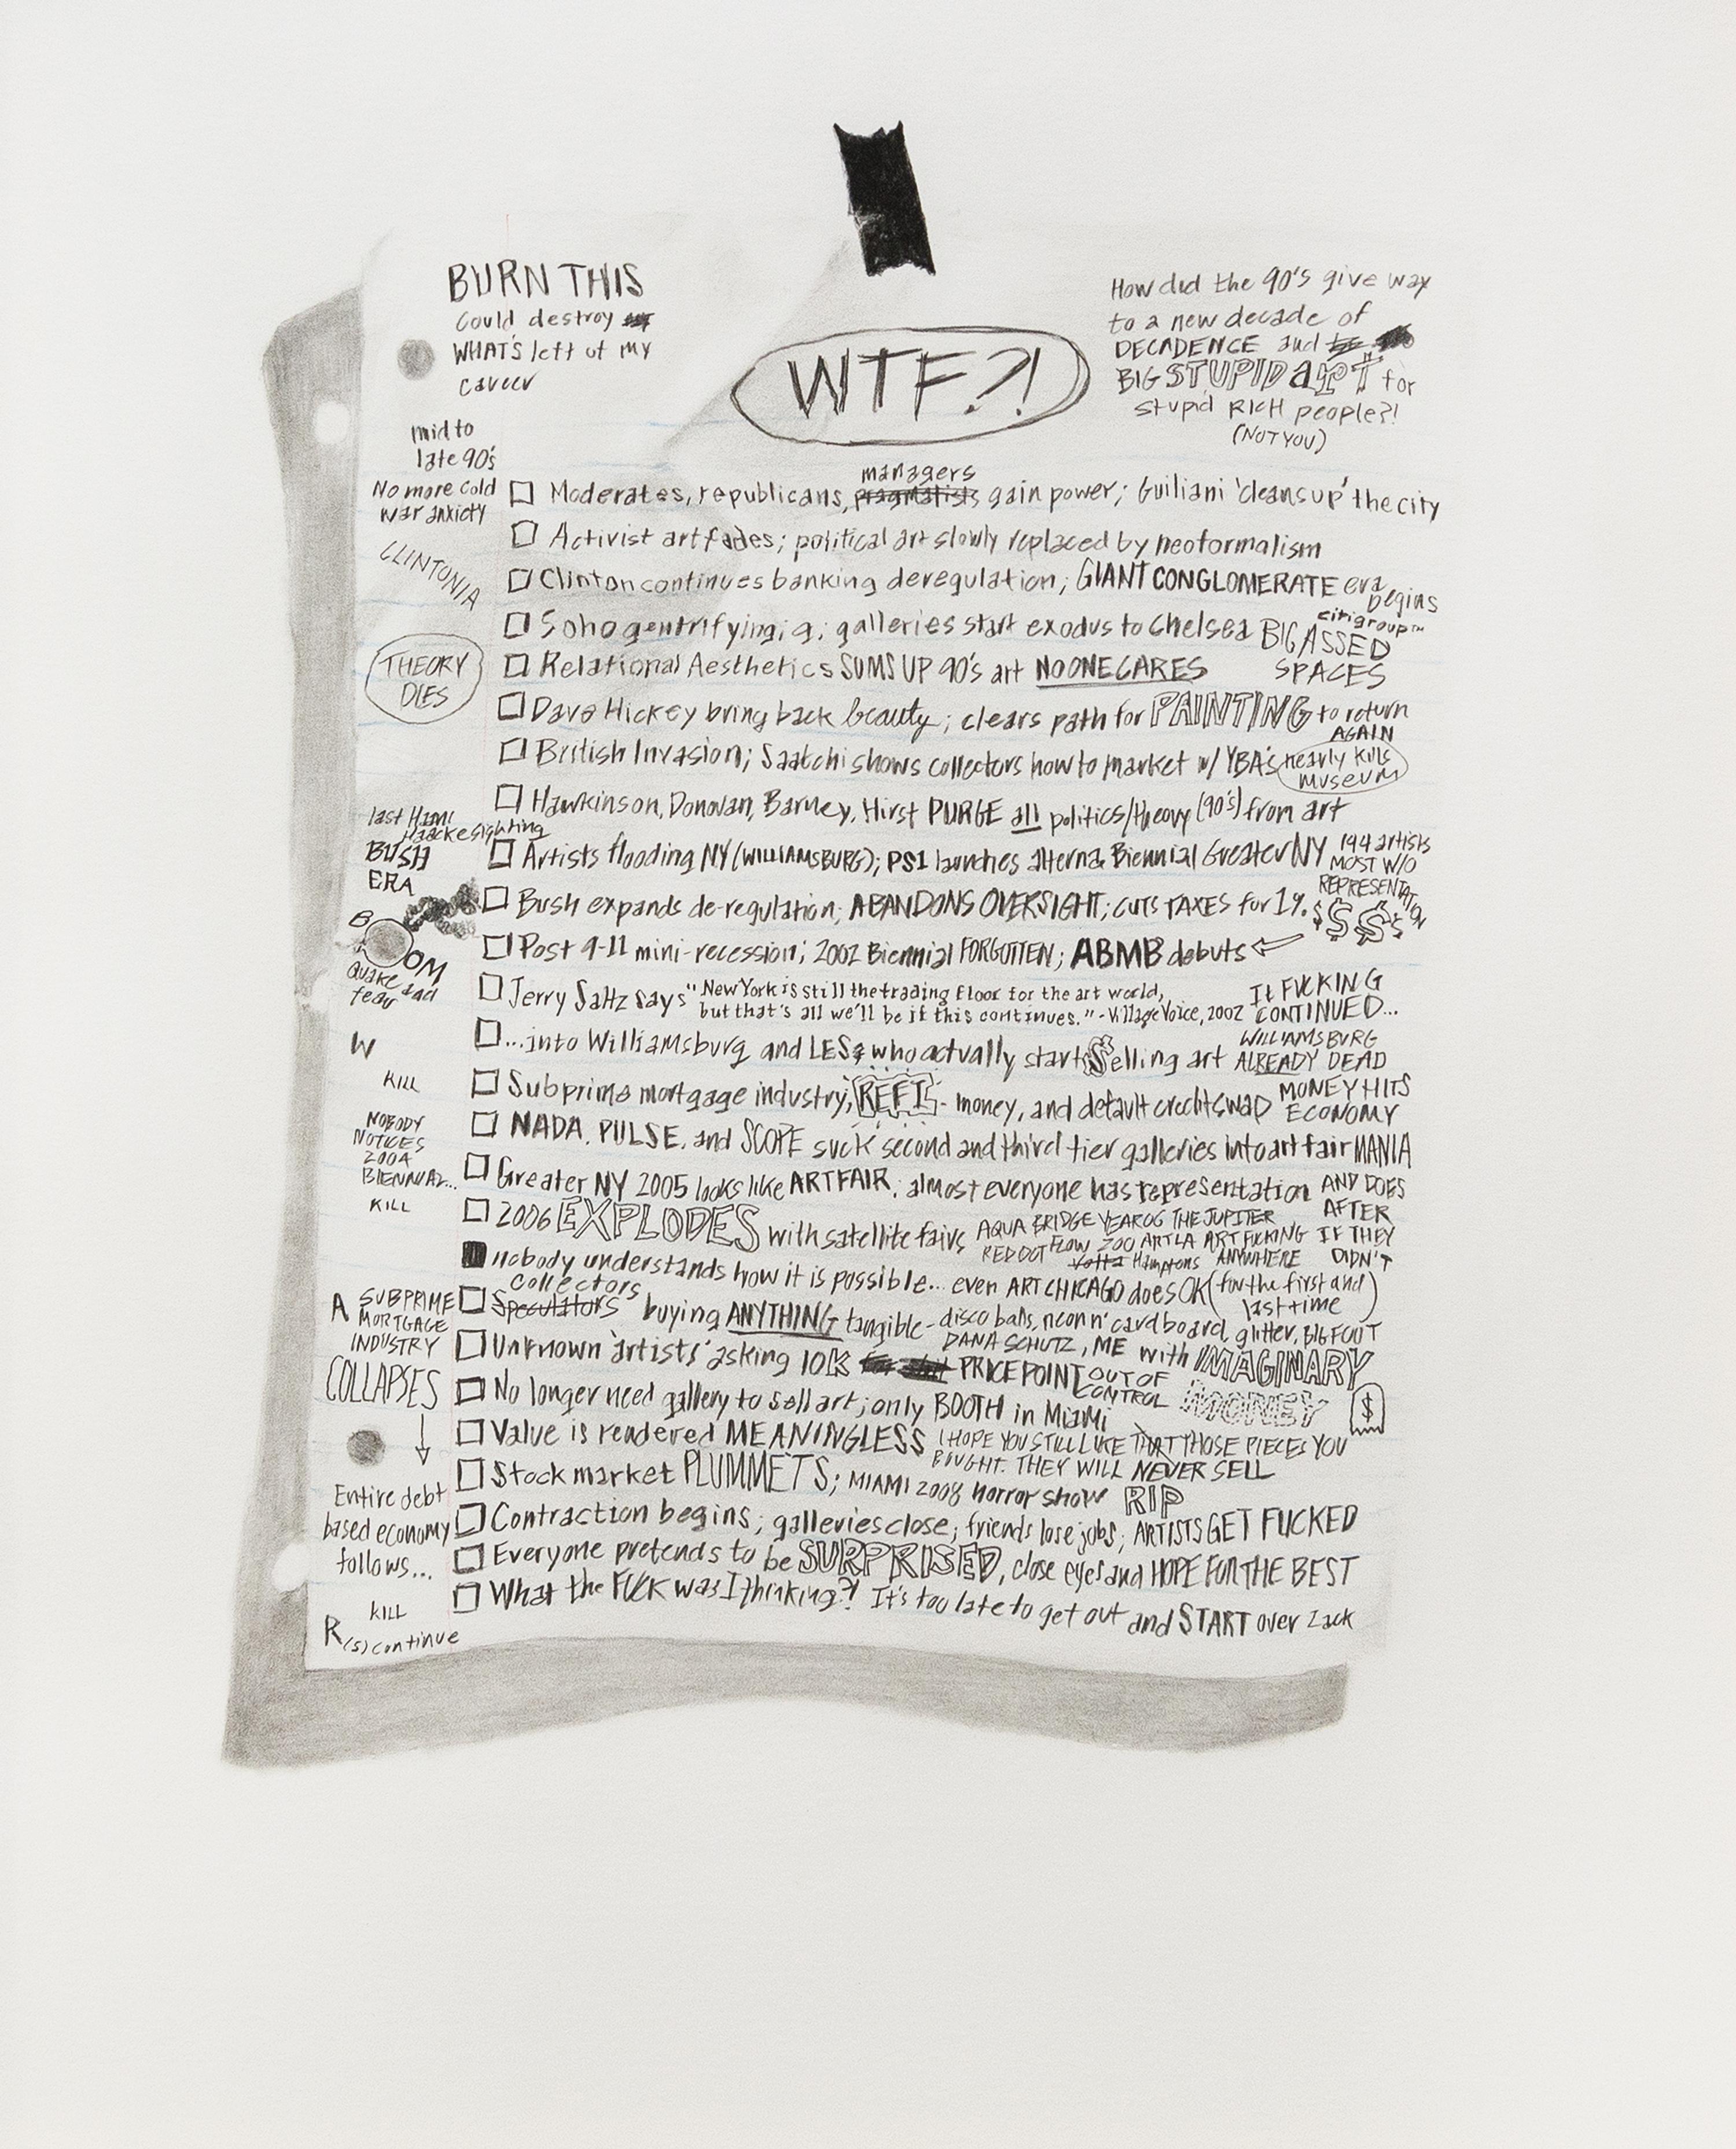 BURN THIS
could destroy
WHAT'S left of my
career
WTF?!
How did the 90's give way
to a new decade of
DECADENCE and
BIG STUPID aRT for
stupid RICH people?!
(NOT YOU)
mid to
late 90's
No more cold
war anxiety
CLINTONIA
THEORY
DIES
managers
Moderates, republicans, pragmatists gain power; Guiliani 'cleans up' the city
Activist art fades; political art slowly replaced by neoformalism
Clinton continues banking deregulation; GIANT CONGLOMERATE era
begins
citigroup™
Soho gentrifying; galleries start exodus to Chelsea BIG ASSED
SPACES
Relational Aesthetics SUMS UP 90's art NO ONE CARES
Dave Hickey bring back beauty; clears path for PAINTING to return
AGAIN
British Invasion; Saatchi shows collectors how to market w/ YBA's nearly kills
museum
Hawkinson, Donovan, Barney, Hirst PURGE all politics/theory (90's) from art
last Hans
Haacke sighting
BUSH
ERA
Artists flooding NY (WILLIAMSBURG); PS1 launches alterna Biennial Greater NY 194 artists
MOST W/O
REPRESENTATION
Bush expands de-regulation; ABANDONS OVERSIGHT; CUTS TAXES for 1% $$$$
BOOM
Quake and
fear
Post 9-11 mini-recession; 2002 Biennial FORGOTTEN; ABMB debuts
Jerry Saltz says "New York is still the trading floor for the art world,
but that's all we'll be if this continues." - Village Voice, 2002
It FUCKING
CONTINUED...
W
...into Williamsburg and LES; who actually start $elling art
WILLIAMSBURG
ALREADY DEAD
KILL
Subprime mortgage industry, REFI - money, and default credit swap MONEY HITS
ECONOMY
NOBODY
NOTICES
2004
BIENNIAL...
KILL
NADA, PULSE, and SCOPE suck second and third tier galleries into art fair MANIA
Greater NY 2005 looks like ART FAIR; almost everyone has representation AND DOES
AFTER
IF THEY
DIDN'T
2006 EXPLODES with satellite fairs AQUA BRIDGE YEAR06 THE JUPITER
RED DOT FLOW ZOO ART LA ART FUCKING
Volta Hamptons ANYWHERE
nobody understands how it is possible... even ART CHICAGO does OK (for the first and
last time)
collectors
Speculators buying ANYTHING tangible - disco balls, neon n' cardboard, glitter, BIGFOOT
DANA SCHUTZ, ME with IMAGINARY
MONEY $
A SUBPRIME
MORTGAGE
INDUSTRY
COLLAPSES
Unknown 'artists' asking 10K PRICE POINT OUT OF
CONTROL
No longer need gallery to sell art; only BOOTH in Miami
Value is rendered MEANINGLESS I HOPE YOU STILL LIKE THAT THOSE PIECES YOU
BOUGHT. THEY WILL NEVER SELL
Stock market PLUMMETS; MIAMI 2008 horror show RIP
Entire debt
based economy
follows...
Contraction begins; galleries close; friends lose jobs; ARTISTS GET FUCKED
Everyone pretends to be SURPRISED, close eyes and HOPE FOR THE BEST
What the FUCK was I thinking?! It's too late to get out and START over Zack
KILL
R(s) continue